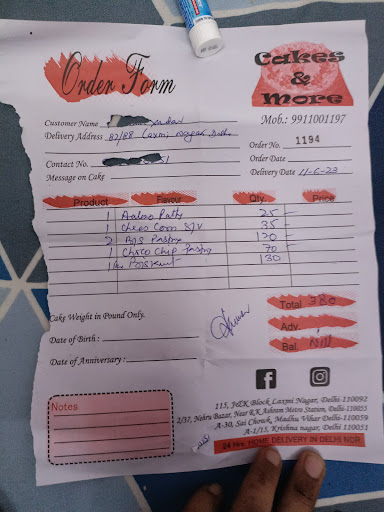 Order Form
Cakes
&
More
Mob.: 9911001197
Customer Name
Delivery Address B2/88 Laxmi Nagar Delhi
Order No. 1194
Contact No.
Order Date
Message on Cake
Delivery Date 11-6-23
Product Flavour Qty. Price
1 Aaloo Patty 25
1 Chees Corn S/W 35
2 Pastry 120
1 Choco Chip Pastry 70
1 130
Total 380
Cake Weight in Pound Only.
Adv.
Date of Birth :
Bal. Nill
Date of Anniversary :
Notes
115, J-EX Block Laxmi Nagar, Delhi-110092
2/37, Nehru Bazar, Near R.K Ashram Metro Station, Delhi-110055
A-30, Sai Chowk, Madhu Vihar Delhi-110059
A-1/15, Krishna nagar, Delhi 110051
24 Hrs. HOME DELIVERY IN DELHI NCR.